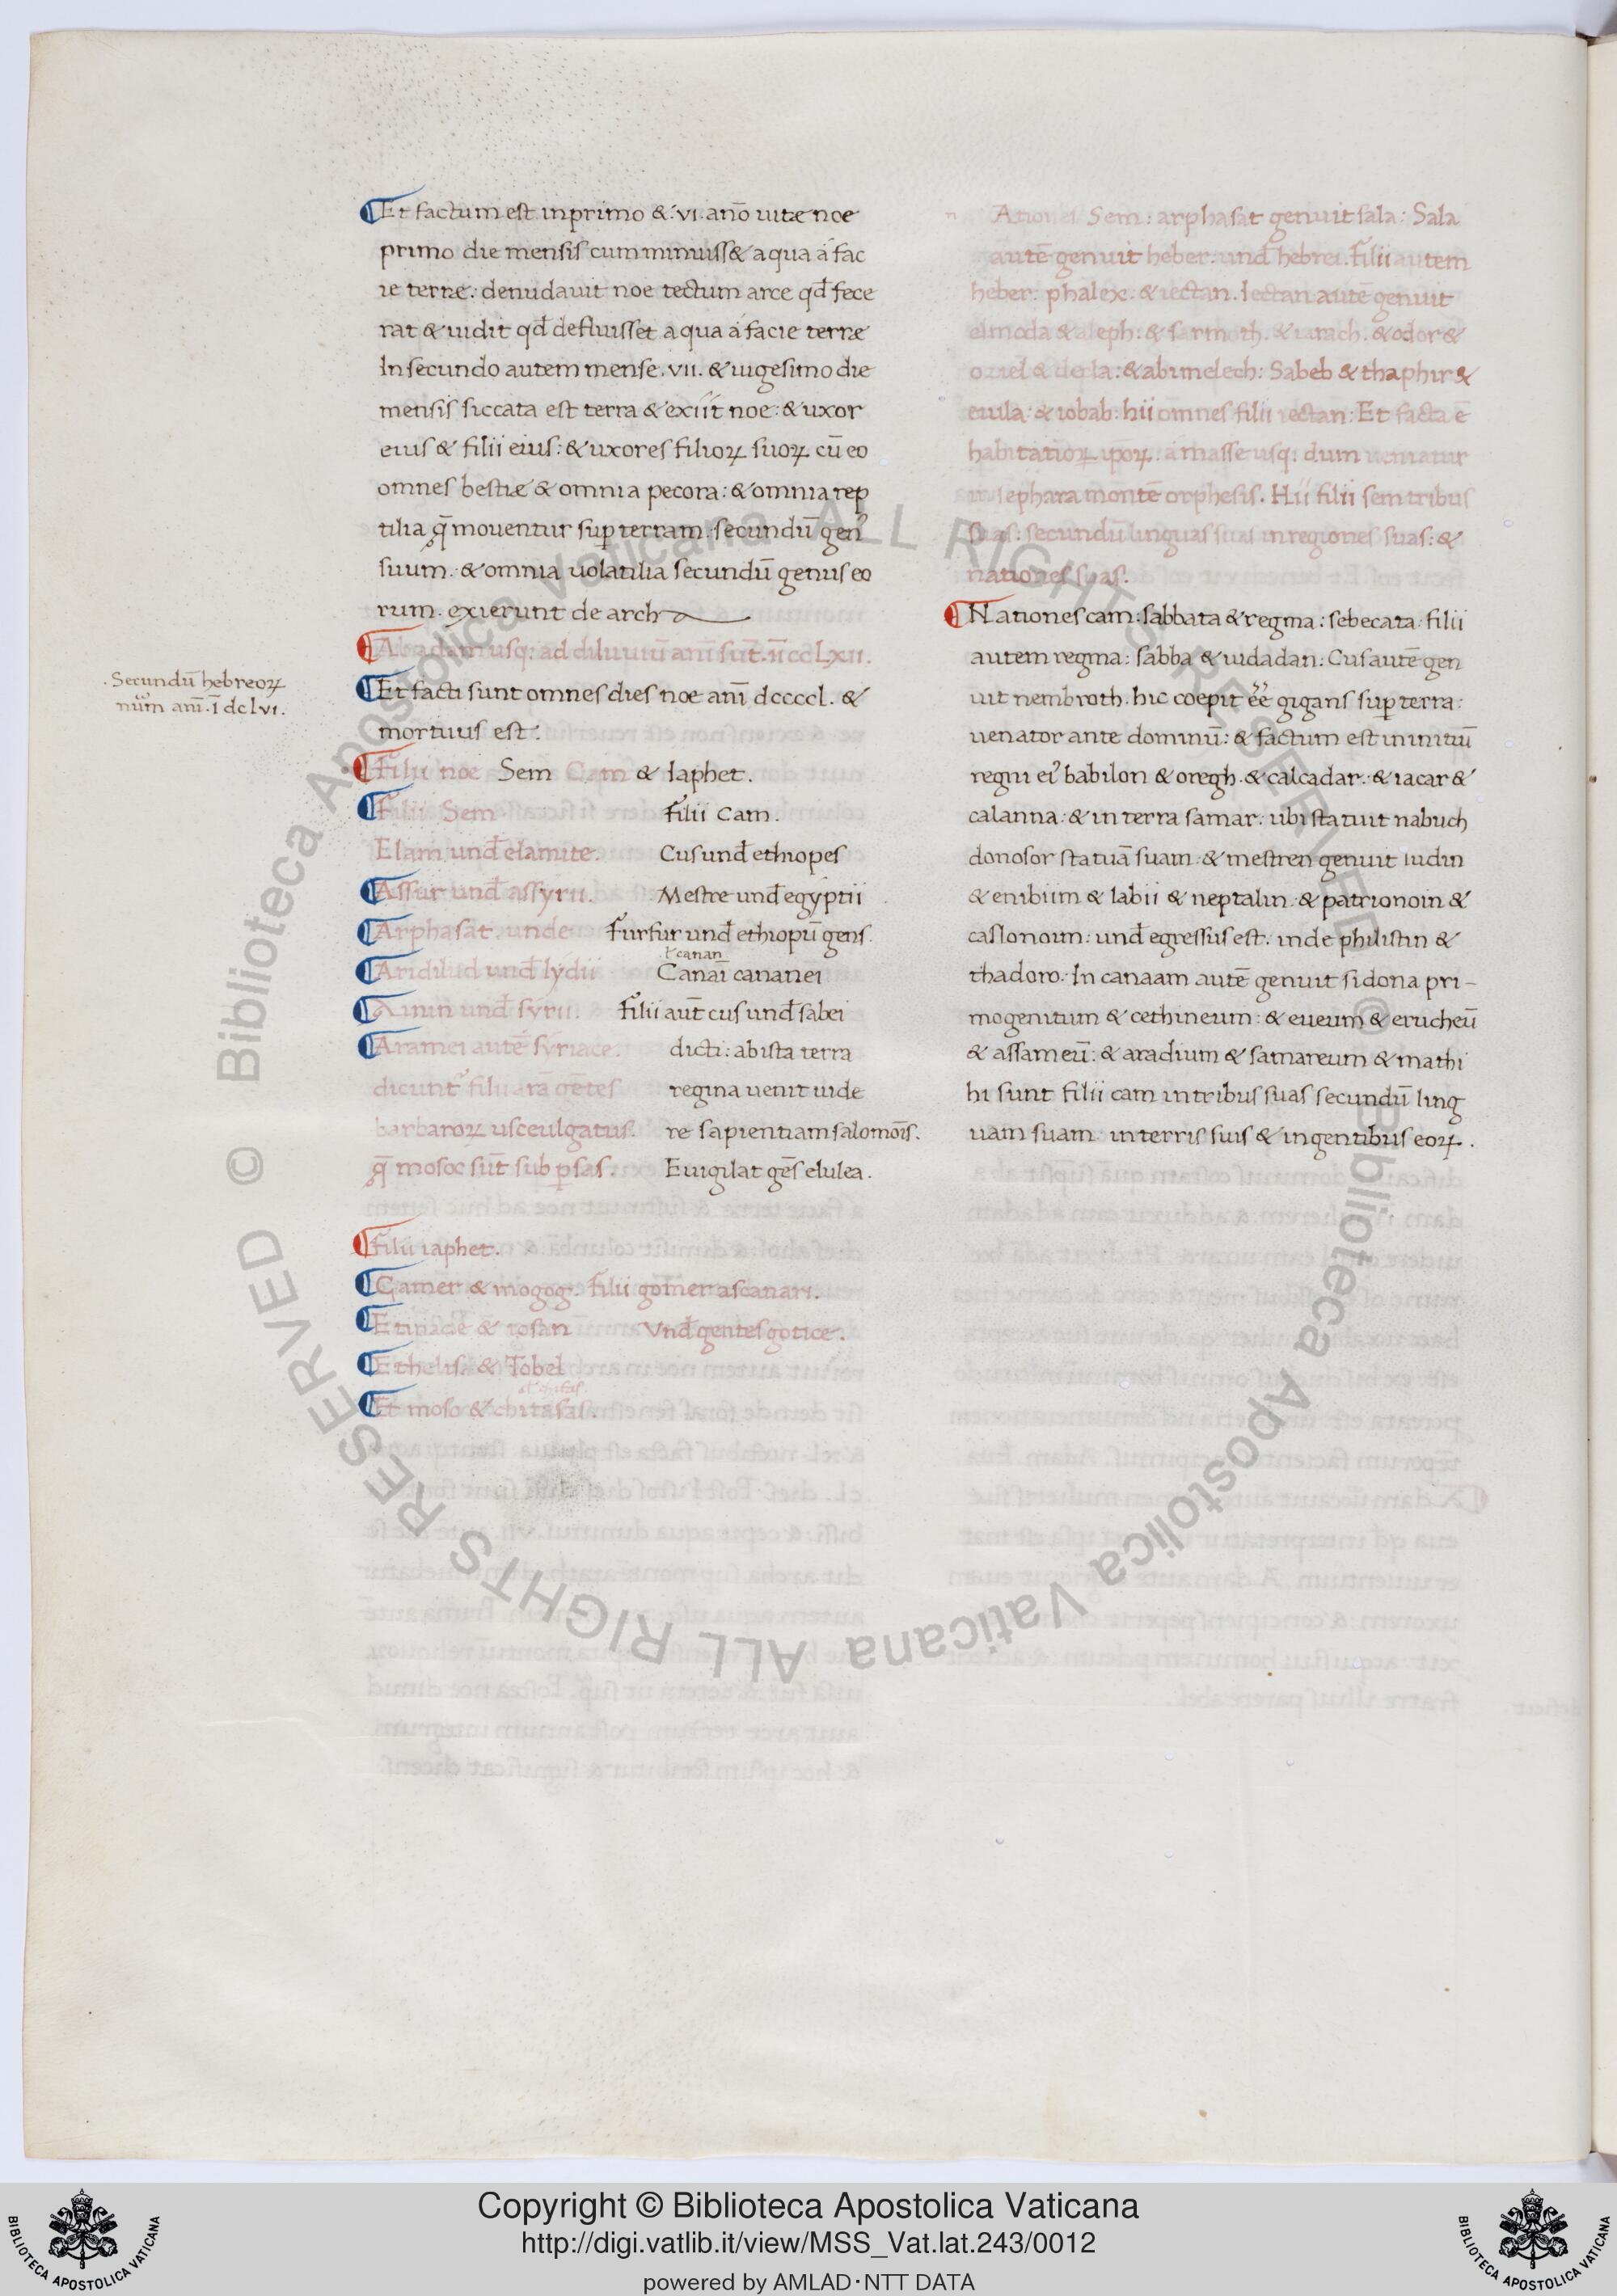 Et factum est in primo &. vi. anō uitæ noe
primo die mensis cum minuiss& aqua á fac
ie terræ: denudauit noe tectum arce qđ fece
rat & uidit qđ defluisset aqua á facie terræ
In secundo autem mense. vii. & uigesimo die
mensis siccata est terra & exiít noe: & uxor
eius & filii eius: & uxores filioꝝ suoꝝ cū eo
omnes bestiæ & omnia pecora: & omnia rep
tilia q̄ mouentur suꝑ terram. secundū genꝰ
suum. & omnia uolatilia secundū genus eo
rum. exierunt de archa
Ab adam usq; ad diluuiū anī sūt. īīccLxii.
Secundū hebreoꝝ
nūm anī. ī dclvi.
Et facti sunt omnes dies noe anī dccccl. &
mortuus est.
Filii noe Sem Cam & Iaphet.
Filii Sem Filii Cam.
Elam und̄ elamite. Cus und̄ ethiopes
Assur und̄ assyrii. Mestre und̄ egyptii
Arphasat. unde Furfur und̄ ethiopū gens.
ł canan
Aridilud und̄ lydii Canaī cananei
und̄ syrii. Filii aūt cus und̄ sabei
Aramei autē syriace. dicti: ab ista terra
dicuntꝰ filii arā gētes regina uenit uide
barbaroꝝ usceulgatus. re sapientiam salomōis.
q̄ mosoc sūt sub ꝑsas. Euigilat gēs elulea.
Filii iaphet.
Gamer & mogog. Filii gomer ascanari.
& iosan Vnd̄ gentes gotice.
Et helis. & Tobel
Et moso & chitasas.
n Ationes Sem: arphasat genuit sala: Sala
autē genuit heber: und̄ hebrei. filii autem
heber: phalex. & iectan. Iectan autē genuit
elmoda & aleph: & sarmoth. & iarach. & odor &
oziel & decla: & abimelech: Sabeb & thaphir &
euila: & iobab: hii omnes filii iectan: Et facta ē
habitatioꝝ ipoꝝ: á masse usq; dum ueniatur
in sephara montē orphesis. Hii filii sem tribus
suas: secundū linguas suas in regiones suas: &
nationes suas.
Nationes cam: sabbata & regma: sebecata filii
autem regma: sabba & uidadan: Cus autē gen
uit nembroth. hic coepit éé gigans suꝑ terra:
uenator ante dominū: & factum est in initiū
regni eiꝰ babilon & oregh. & calcadar. & iacar &
calanna: & in terra samar: ubi statuit nabuch
donosor statuā suam. & mestren genuit ludin
& enibiim & labii & neptalin. & patrionoin &
caslonoim: und̄ egressus est. inde philistin &
thadoro. In canaam autē genuit sidona pri-
mogenitum & cethineum: & eueum & erucheū
& assameū: & aradium & samareum & mathi
hi sunt filii cam in tribus suas secundū ling
uam suam. in terris suis & in gentibus eoꝝ.
Copyright © Biblioteca Apostolica Vaticana
http://digi.vatlib.it/view/MSS_Vat.lat.243/0012
powered by AMLAD·NTT DATA
BIBLIOTECA APOSTOLICA VATICANA
BIBLIOTECA APOSTOLICA VATICANA
© Biblioteca Apostolica Vaticana ALL RIGHTS RESERVED
© Biblioteca Apostolica Vaticana ALL RIGHTS RESERVED